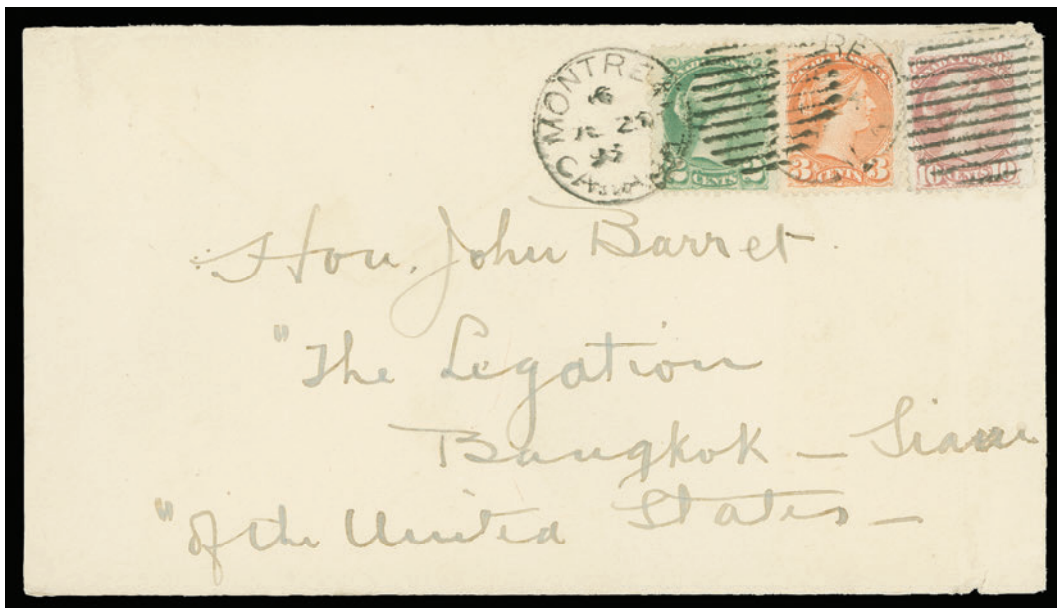 MONTRE
6
25
95
CANADA
2 CENTS 2
3 CENTS 3
CANADA POSTAGE
10 CENTS 10
Hon. John Barret.
"The Legation
Bangkok — Siam
"of the United States —